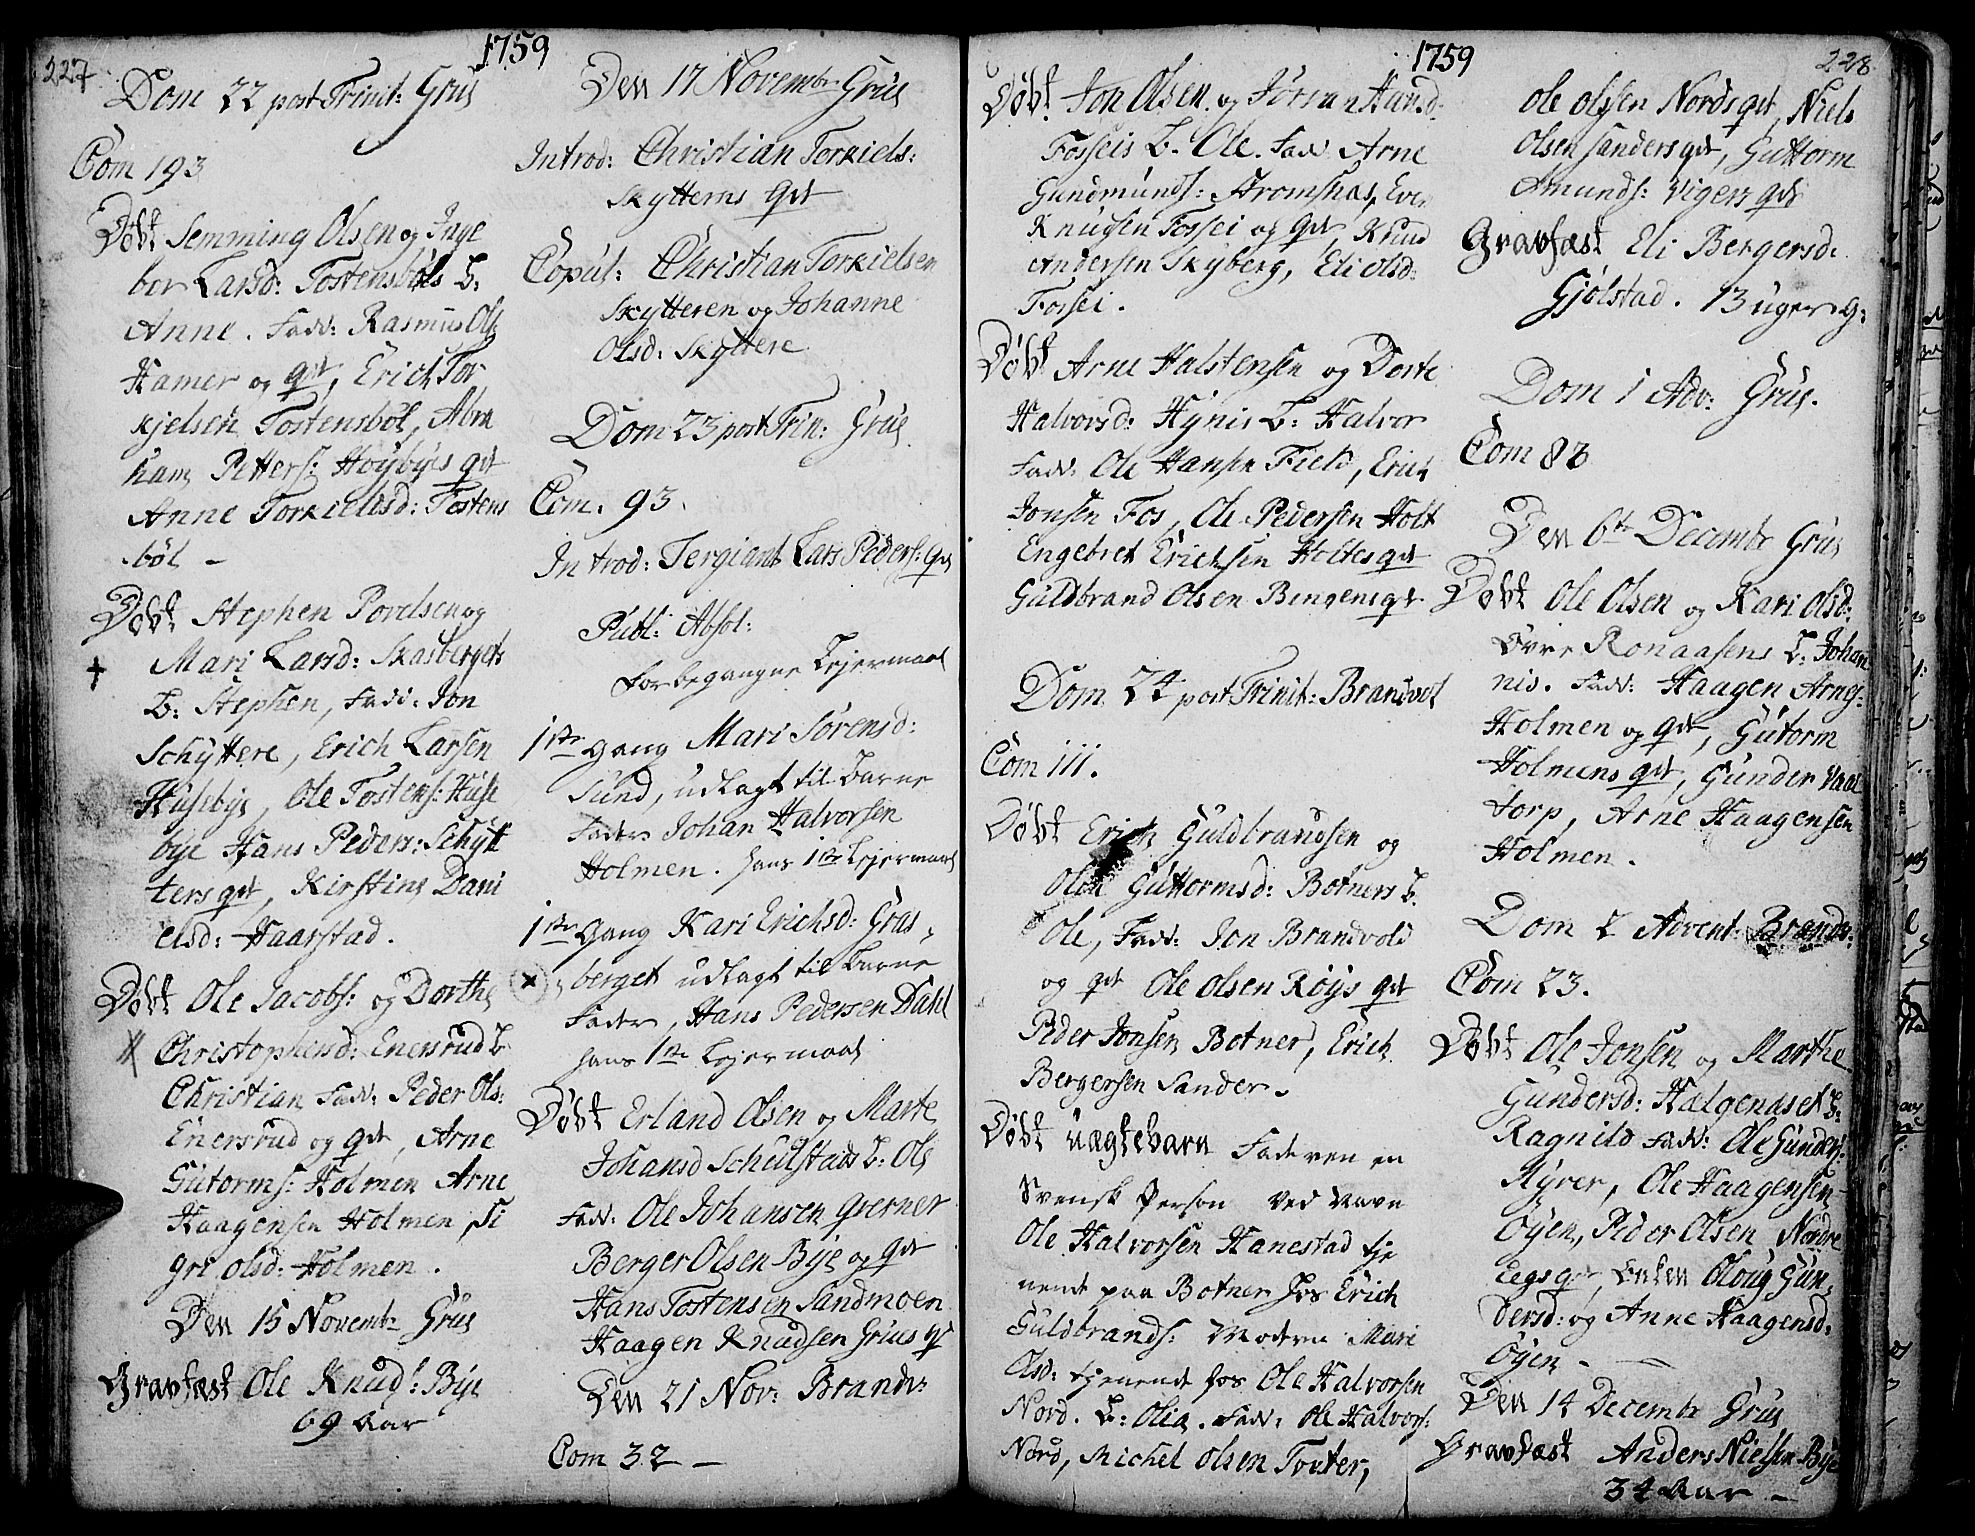 227
1759
Dom 22 post Trinit: Grue
Com 193
Døbt Semming Olsen og Inge
bor Larsd: Tostensbøls b:
Anne. Fadd: Rasmus Ols:
Hamer og qvt, Erich Tor
kjelsen Tostensbøl, Abra
ham Petters: Høybyes qvt
Anne Torkieldsd: Tostens
bøl –
Døbt Stephen Povelsen og
Mari Larsd: Skasbergets
b: Stephen, Fadd: Jon
Schyttere, Erich Larsen
Husebye, Ole Tostens: Huse
bye Hans Peders: Schyt
ters qvt, Kirstine Dani
elsd: Haarstad.
Døbt Ole Jacobs: og Dorthe
Christophersd: Enersrud b
Christian Fadd: Peder Ols:
Enersrud og qvt, Arne
Gutorms: Holmen Arne
Haagensen Holmen, Si
gri olsd: Holmen.
Den 15 Novembr Grue
Gravfæst Ole Knuds: Bye
69 Aar
Den 17 Novembr Grue
Introd: Christian Torkiels:
Skytterns qvt
Copul: Christian Torkielsen
Skytteren og Johanne
Olsd: Skyttere
Dom 23 post Trin: Grue
Com. 93.
Introd: Sergiant Lars Peders: qvt
Publ: Absol:
for begangne Lejermaal
1ste gang Mari Sørensd:
Sund, udlagt til Barne
Fader Johan Halvorsen
Holmen. hans 1ste Lejermaal
1ste Gang Kari Erichsd: Gras
berget udlagt til Barne
Fader, Hans Pedersen Dahl
hans 1ste Lejermaal
Døbt Erland Olsen og Marte
Johansd Schulstads b: Ole
Fadd: Ole Johansen Grerner
Berger Olsen Bye og qvt
Hans Tostensen Sandmoen
Haagen Knudsen Grues qvt
Den 21 Nov: Brandv:
Com 32 –
1759
228
Døbt Jon Olsen og Jøran Hansd:
Fosseis b. Ole. Fadd Arne
Gundmunds: Strømsnas, Even
Knudsen Fossei og qvt, Knud
Andersen Skyberg, Eli olsd:
Forsei.
Døbt Arne Halstensen og Dorte
Halvorsd: Hynis b: Halvor
Fadd: Ole Hansen Field, Erich
Jonsen Fos, Ole Pedersen Holt
Engebret Erichsen Holtes qvt
Guldbrand Olsen Bengens qvt.
Dom 24 post Trinit: Brandvol
Com 111.
Døbt Erich Guldbrandsen og
Olou Guttormsd: Botners b.
Ole, Fadd: Jon Brandvold
og qvt Ole Olsen Røys qvt
Peder Jonsen Botner, Erich
Bergersen Sander.
Døbt uægtebarn Faderen en
Svensk Person ved Navn
Ole Halvorsen Hanestad tje
nende paa Botner hos Erich
Guldbrands: Moderen Mari
Olsd: tjenende hos Ole Halvorsen
Nord. b: Olia. Fadd: Ole Halvors:
Nord, Michel Olsen Tvoter,
Ole Olsen Nords qvt, Niels
Olsen Sanders qvt, Guttorm
Amunds: Vigers qvt
Gravfæst Eli Bergersd:
Gjølstad. 13 uger g:
Dom 1 Adv: Grue.
Com 88
Den 6te Decembr Grue
Døbt Ole Olsen og Kari Olsd:
Øvre Ronaasens b: Johan
nis. Fadd: Haagen Arnes:
Holmen og qvt, Gutorm
Holmens qvt, Gunder Vaal
torp, Arne Haagensen
Holmen.
Dom 2 Advent: Brandv:
Com 23.
Døbt Ole Jonsen og Marthe
Gundersd: Hælgenaset b:
Ragnild Fadd: Ole Gunders:
Kyrer, Ole Haagensen
Øyen, Peder Olsen Nordre
Eegs qvt, Enken Oloug Gun
dersd: og Anne Haagensd:
Øyen –
Den 14 Decembr Grue
Gravfæst Anders Nielsen Bye
34 Aar –